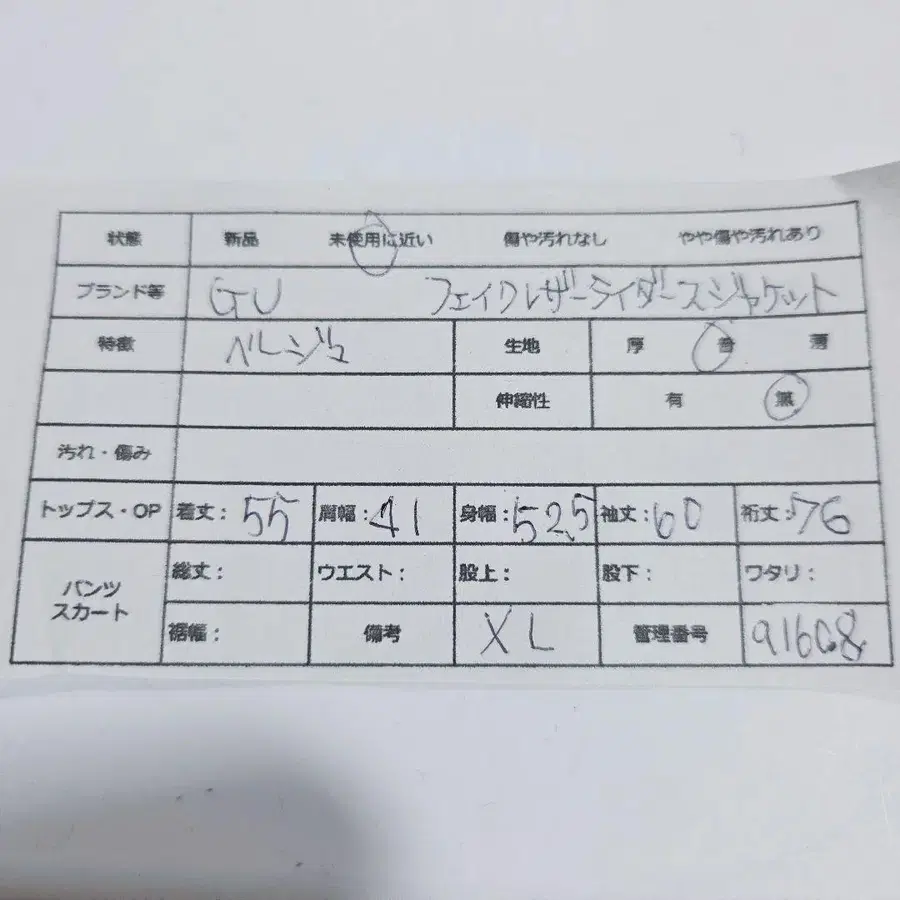 状態 新品 未使用に近い 傷や汚れなし やや傷や汚れあり
ブランド等 GU フェイクレザーライダースジャケット
特徴 ベージュ 生地 厚 普 薄
伸縮性 有 無
汚れ・傷み
トップス・OP 着丈: 55 肩幅: 41 身幅: 52.5 袖丈: 60 裄丈: 76
パンツ スカート 総丈: ウエスト: 股上: 股下: ワタリ:
裾幅: 備考 XL 管理番号 91608